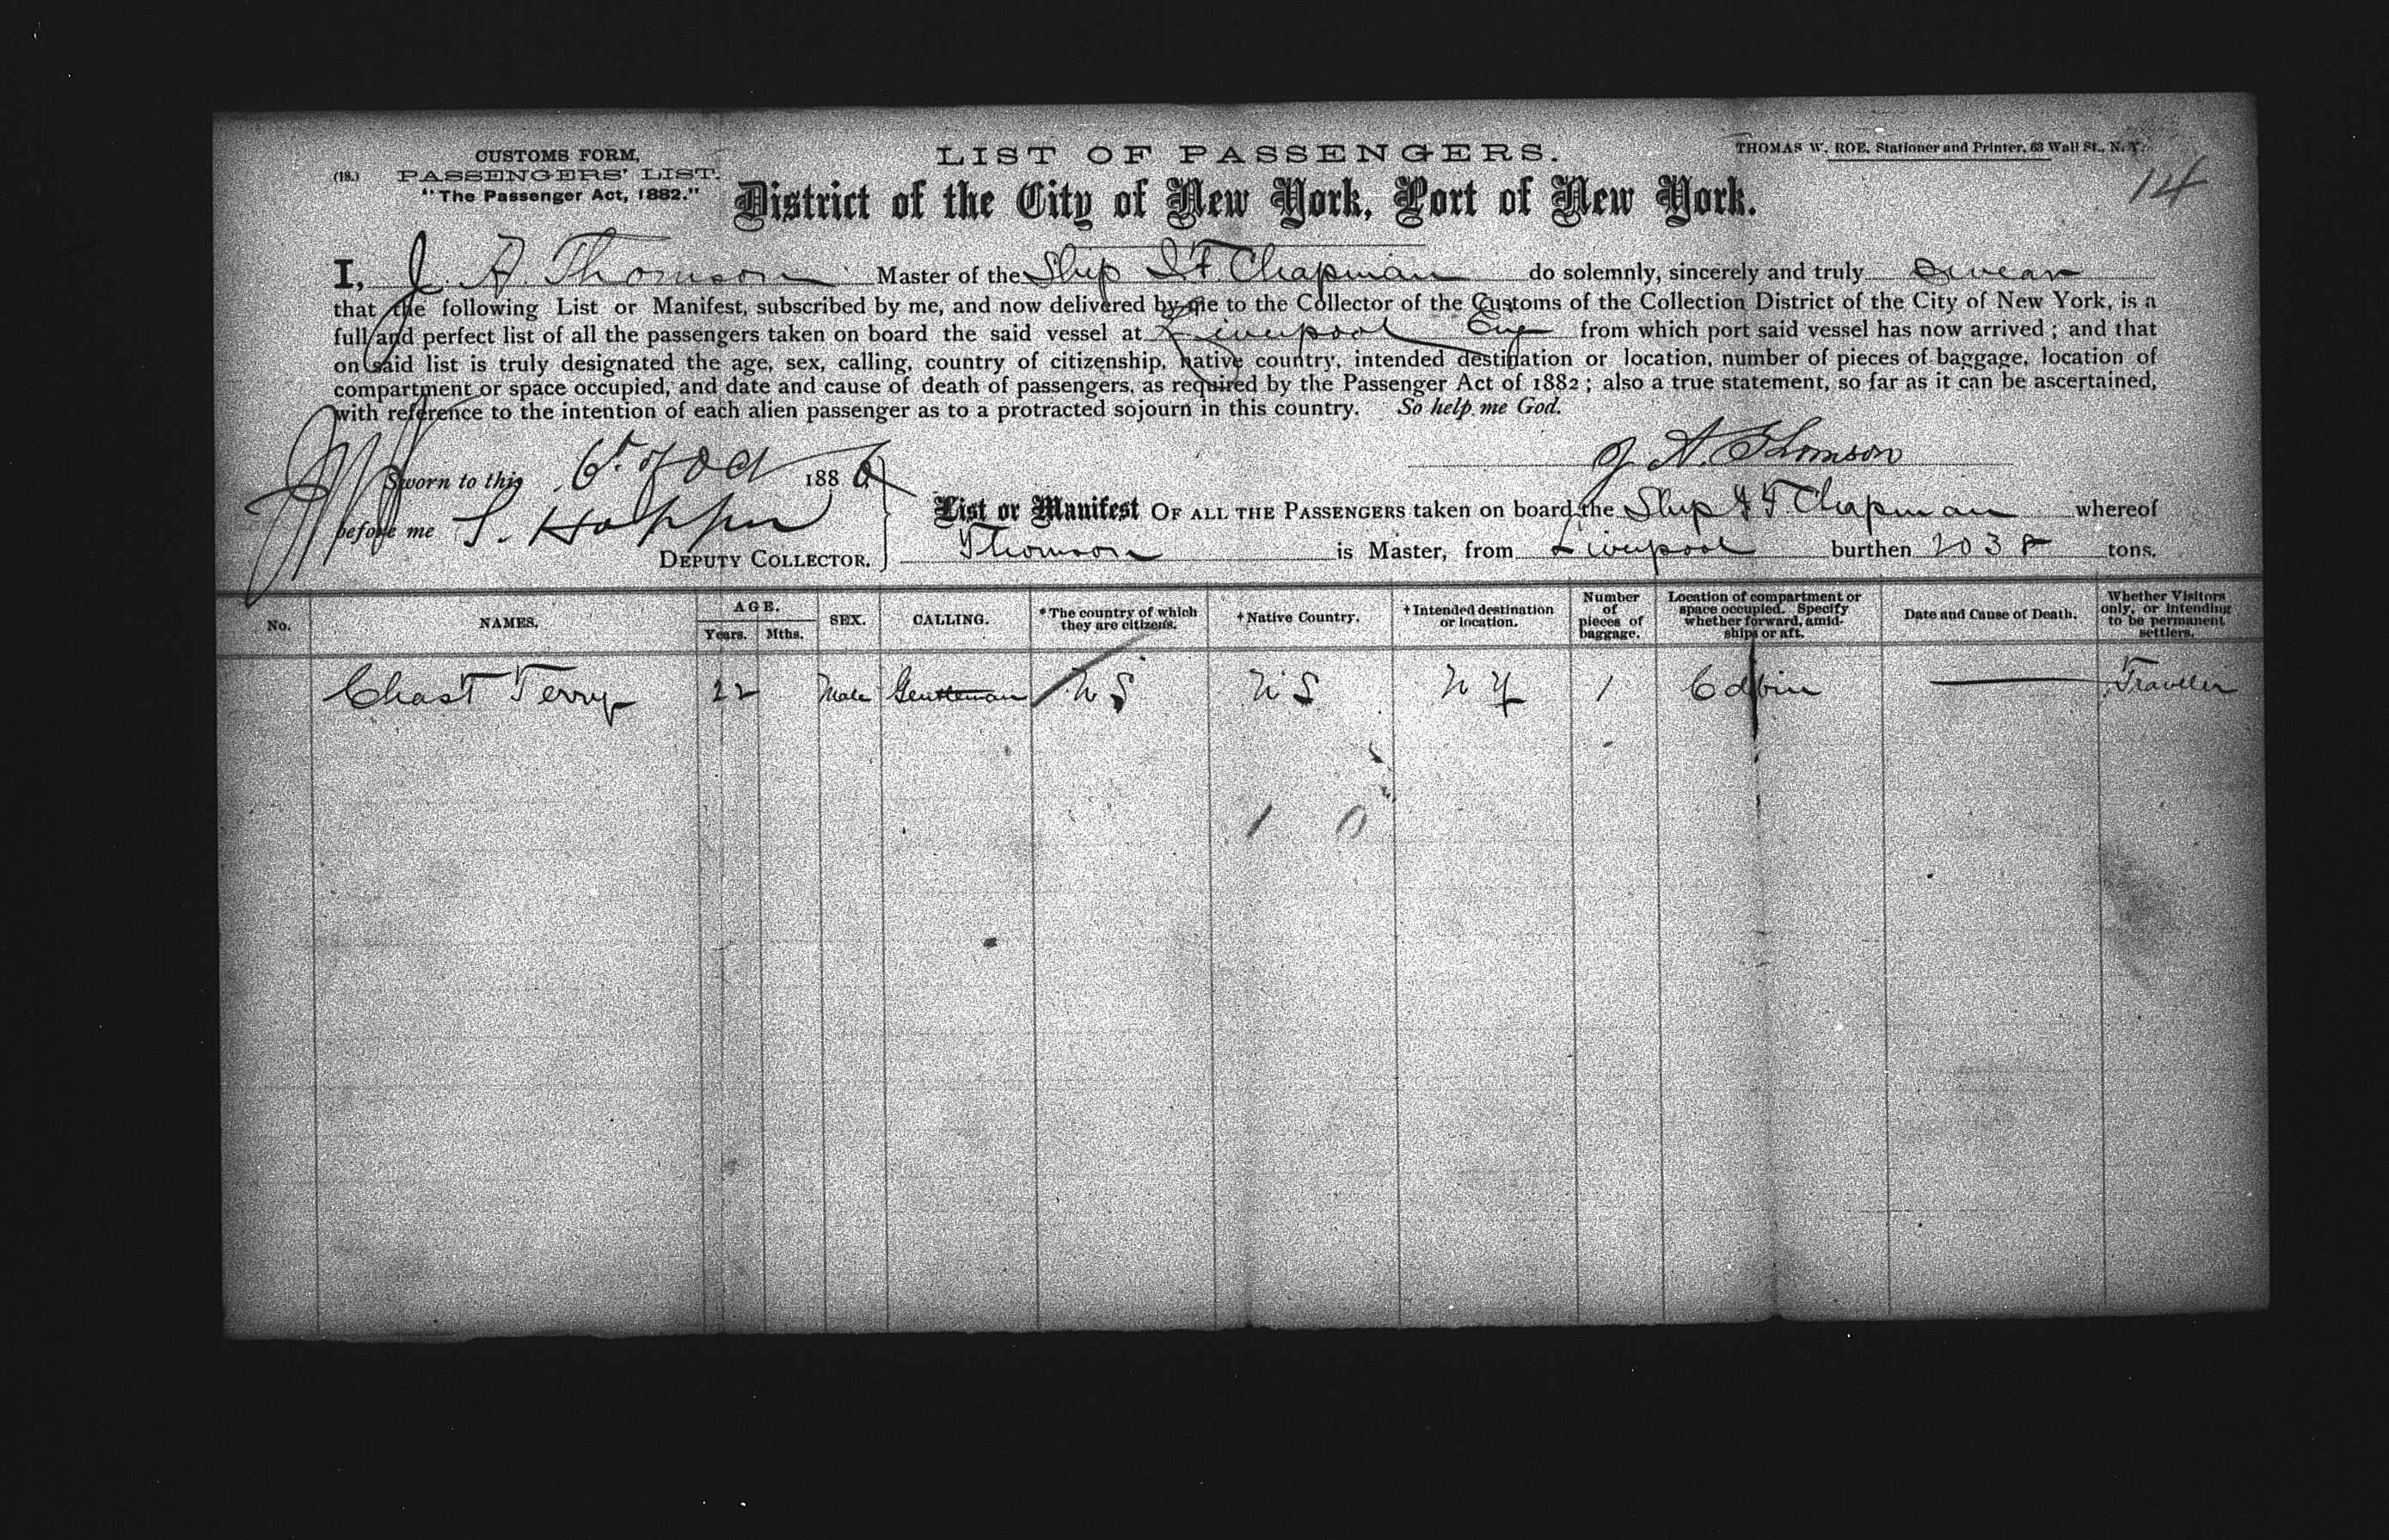 CUSTOMS FORM,
(18.) PASSENGERS' LIST.
"The Passenger Act, 1882."
LIST OF PASSENGERS.
THOMAS W. ROE, Stationer and Printer, 63 Wall St., N. Y.
14
District of the City of New York, Port of New York.
I, J. A. Thomson Master of the Ship I F Chapman do solemnly, sincerely and truly swear
that the following List or Manifest, subscribed by me, and now delivered by me to the Collector of the Customs of the Collection District of the City of New York, is a
full and perfect list of all the passengers taken on board the said vessel at Liverpool Eng from which port said vessel has now arrived; and that
on said list is truly designated the age, sex, calling, country of citizenship, native country, intended destination or location, number of pieces of baggage, location of
compartment or space occupied, and date and cause of death of passengers, as required by the Passenger Act of 1882; also a true statement, so far as it can be ascertained,
with reference to the intention of each alien passenger as to a protracted sojourn in this country. So help me God.
J A. Thomson
Sworn to this 6t of Oct 1886
before me S. 
DEPUTY COLLECTOR.
List or Manifest OF ALL THE PASSENGERS taken on board the Ship I F. Chapman whereof
Thomson is Master, from Liverpool burthen 2038 tons.
No. NAMES. AGE. Years. Mths. SEX. CALLING. *The country of which they are citizens. †Native Country. †Intended destination or location. Number of pieces of baggage. Location of compartment or space occupied. Specify whether forward, amidships or aft. Date and Cause of Death. Whether Visitors only, or intending to be permanent settlers.
Chas T Terry 22 Male Gentleman U S U S N Y 1 Cabin Traveller
1 0